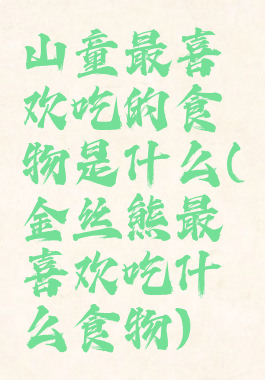 山童最喜
欢吃的食
物是什么(
金丝熊最
喜欢吃什
么食物)